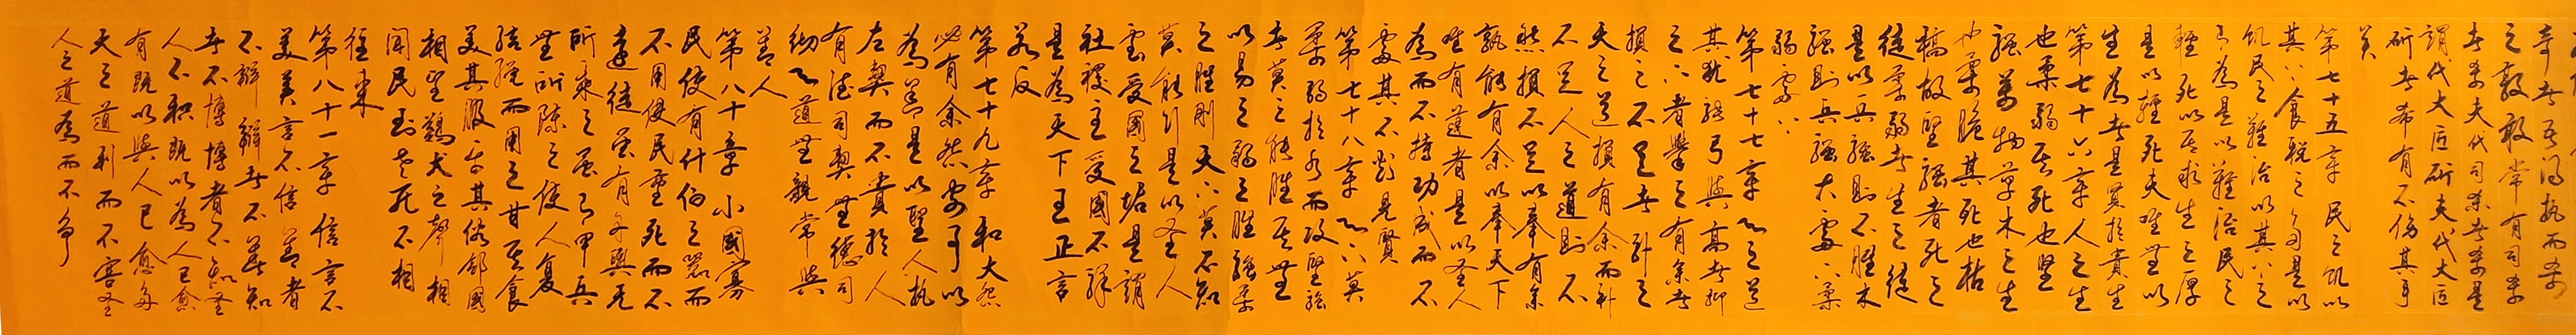 奇者吾得执而杀
之孰敢常有司杀
者杀夫代司杀者杀是
謂代大匠斫夫代大匠
斫者希有不伤其手
矣
第七十五章 民之饥以
其上食税之多是以
饥民之難治以其上之
有為是以難治民之
輕死以其求生之厚
是以輕死夫唯無以
生為者是賢於貴生
第七十六章 人之生
也柔弱其死也堅
强萬物草木之生
也柔脆其死也枯
槁故堅强者死之
徒柔弱者生之徒
是以兵强則不勝木
强則兵强大處下柔
弱處上
第七十七章 天之道
其犹張弓與高者抑
之下者舉之有余者
損之不足者补之
天之道損有余而补
不足人之道則不
然損不足以奉有余
孰能有余以奉天下
唯有道者是以圣人
為而不恃功成而不
處其不欲見賢
第七十八章 天下莫
柔弱於水而攻堅强
者莫之能勝其無
以易之弱之勝强柔
之勝剛天下莫不知
莫能行是以圣人
云受國之垢是謂
社稷主受國不祥
是為天下王正言
若反
第七十九章 和大怨
必有余怨安可以
為善是以聖人执
左契而不責於人
有德司契無德司
彻天道無親常與
善人
第八十章 小國寡
民使有什伯之器而
不用使民重死而不
遠徙虽有舟輿无
所乘之虽有甲兵
無所陈之使人复
结绳而用之甘其食
美其服安其俗邻國
相望鷄犬之聲相
闻民到老死不相
往来
第八十一章 信言不
美美言不信善者
不辯辯者不善知
者不博博者不知圣
人不积既以為人己愈
有既以與人己愈多
天之道利而不害圣
人之道為而不争